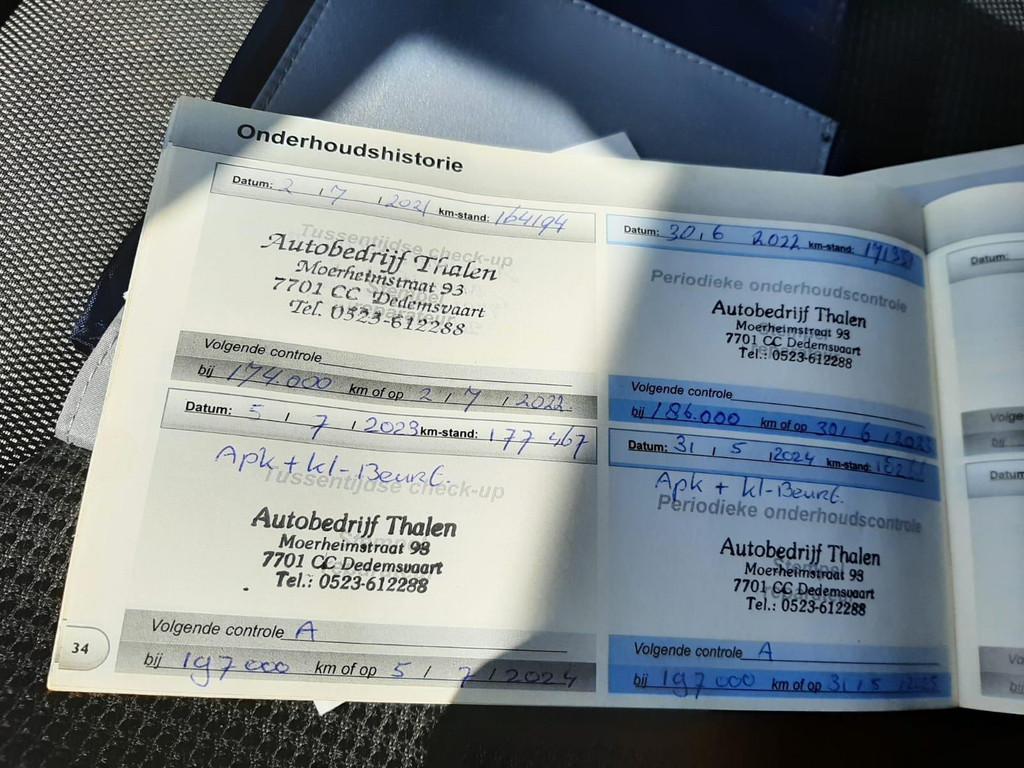 Onderhoudshistorie
Datum: 2 / 7 / 2021 km-stand: 164194
Tussentijdse check-up
Autobedrijf Thalen
Moerheimstraat 93
7701 CC Dedemsvaart
Tel. 0523-612288
Volgende controle
bij 174.000 km of op 2 / 7 / 2022
Datum: 30 / 6 2022 km-stand:
Periodieke onderhoudscontrole
Autobedrijf Thalen
Moerheimstraat 93
7701 CC Dedemsvaart
Tel.: 0523-612288
Volgende controle
bij 186.000 km of op 30 / 6 / 2023
Datum: 5 / 7 / 2023 km-stand: 177 467
Apk + kl-Beurt.
Tussentijdse check-up
Autobedrijf Thalen
Moerheimstraat 93
7701 CC Dedemsvaart
Tel.: 0523-612288
Volgende controle A
bij 197000 km of op 5 / 7 / 2024
Datum: 31 / 5 / 2024 km-stand:
Apk + kl-Beurt.
Periodieke onderhoudscontrole
Autobedrijf Thalen
Moerheimstraat 93
7701 CC Dedemsvaart
Tel.: 0523-612288
Volgende controle A
bij 197000 km of op 31 / 5 / 2025
34
Datum:
Volge
bij
Datum
Vo
bij